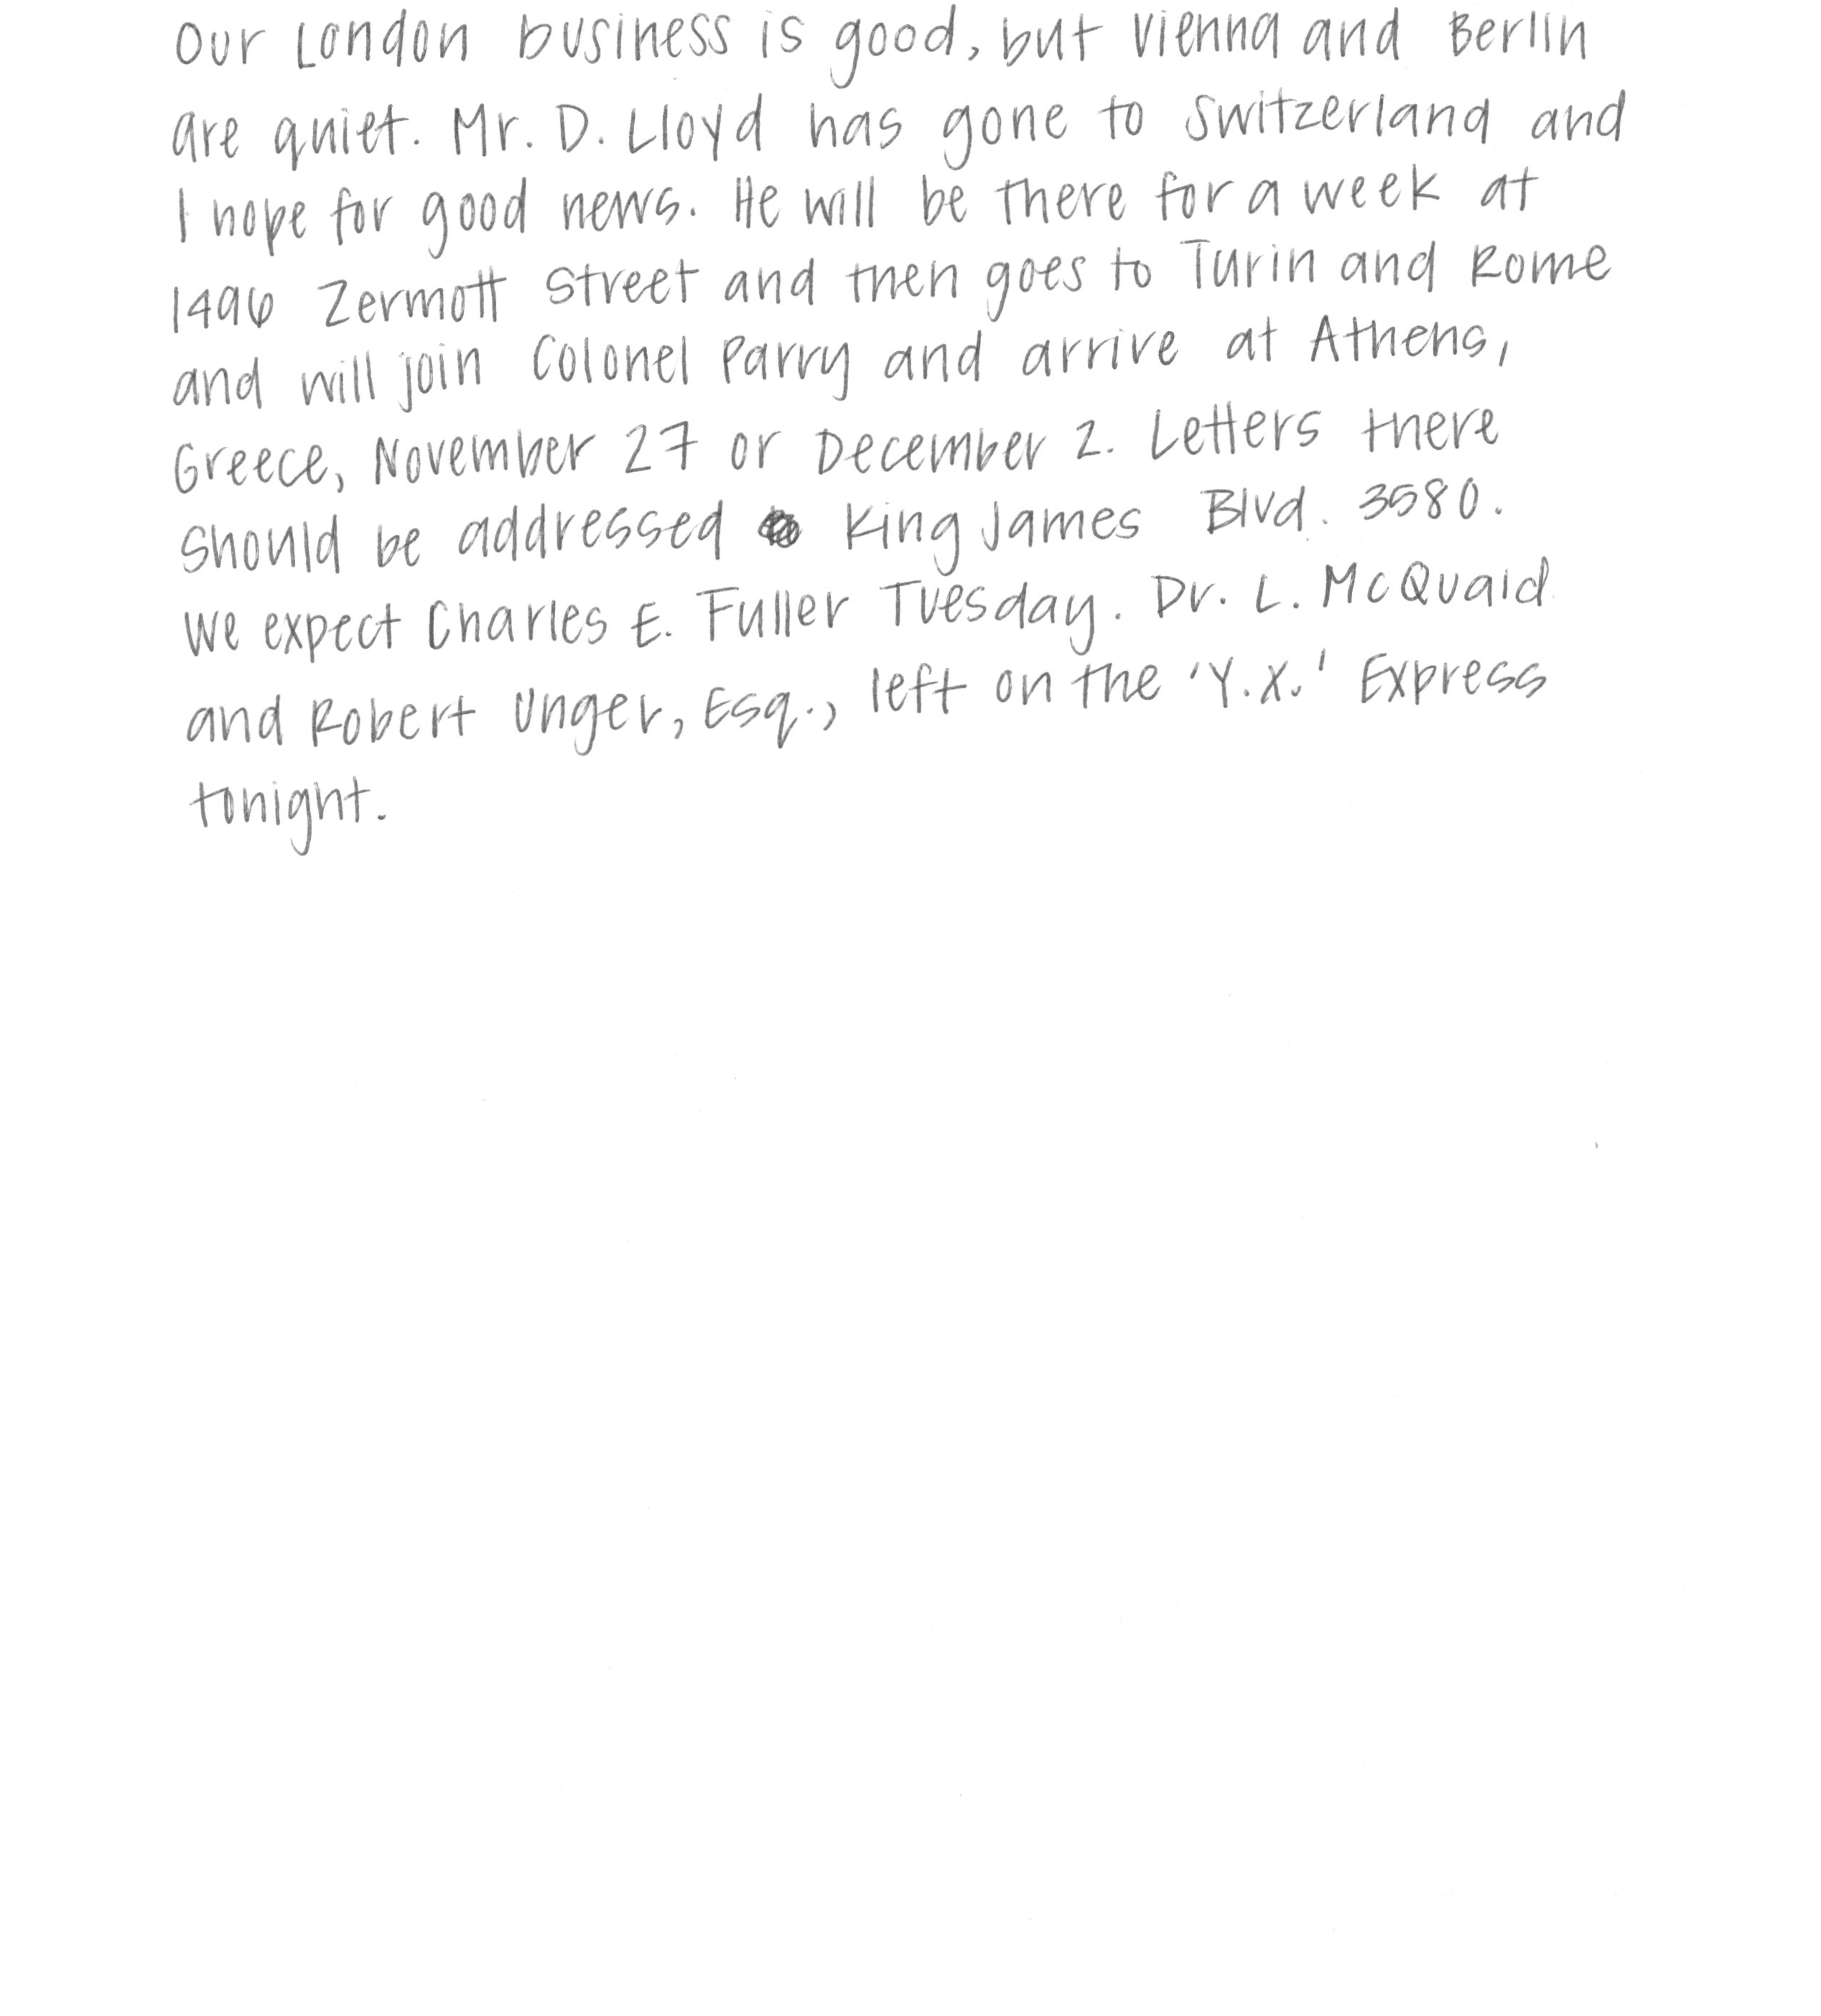 Our London business is good, but Vienna and Berlin
are quiet. Mr. D. Lloyd has gone to Switzerland and
I hope for good news. He will be there for a week at
1496 Zermott Street and then goes to Turin and Rome
and will join Colonel Parry and arrive at Athens,
Greece, November 27 or December 2. Letters there
should be addressed King James Blvd. 3580.
We expect Charles E. Fuller Tuesday. Dr. L. McQuaid
and Robert Unger, Esq., left on the 'Y.X.' Express
tonight.